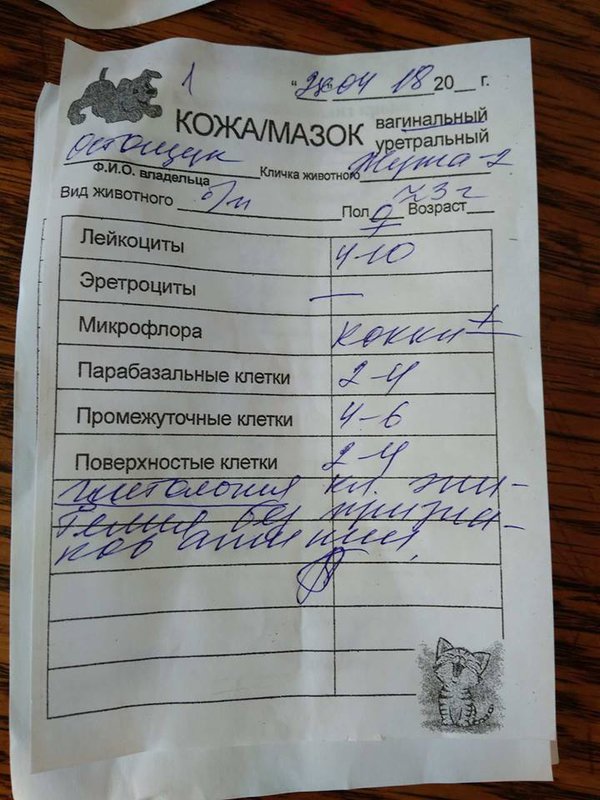 1 "26" 04 18 20__ г.
КОЖА/МАЗОК вагинальный
уретральный
Остащук Кличка животного Жужа-2
Ф.И.О. владельца
Вид животного б/п Пол ♀ Возраст 3 г
Лейкоциты 4-10
Эретроциты —
Микрофлора кокки +
Парабазальные клетки 2-4
Промежуточные клетки 4-6
Поверхностые клетки 2-4
цитология кл. эпи-
телия без призна-
ков атипии.